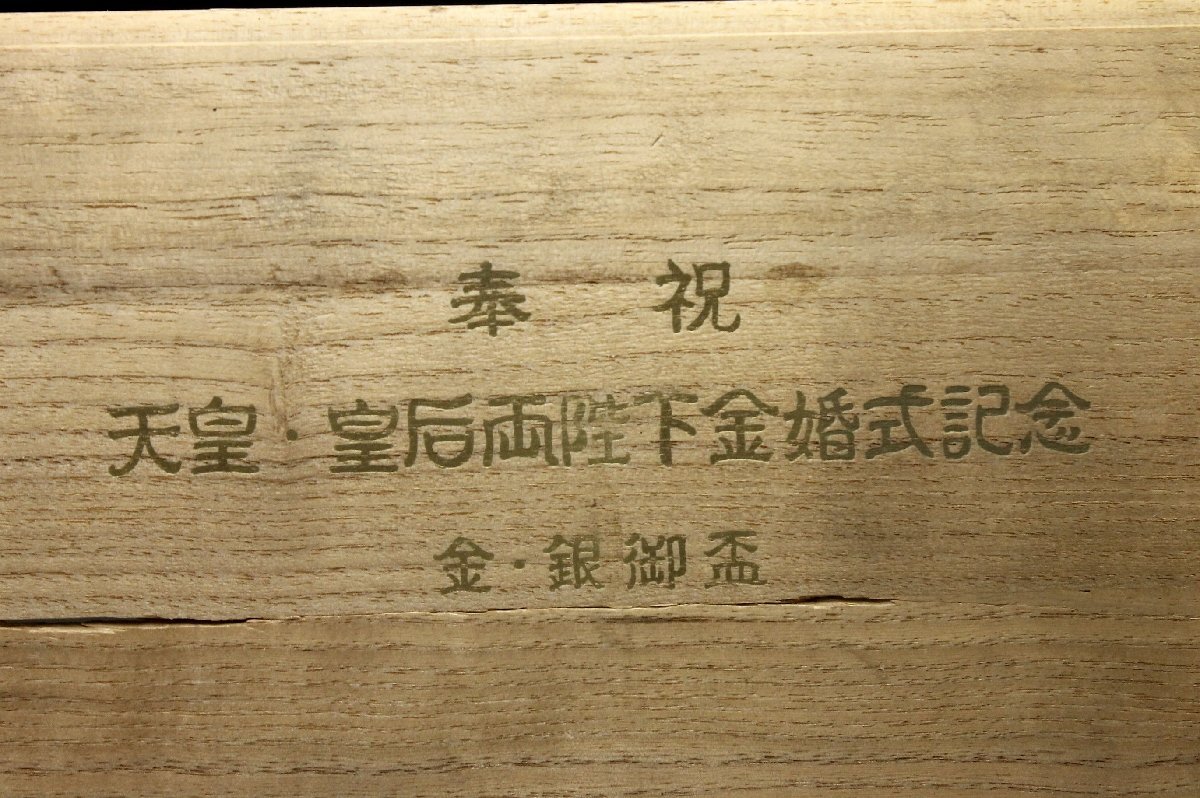 奉祝
天皇・皇后両陛下金婚式記念
金・銀御盃